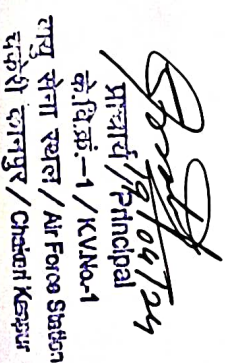 19/04/24
प्राचार्य/Principal
के.वि.क्रं.-1 / K.V.No.-1
वायु सेना स्थल / Air Force Station
चकेरी कानपुर / Chakeri Kanpur